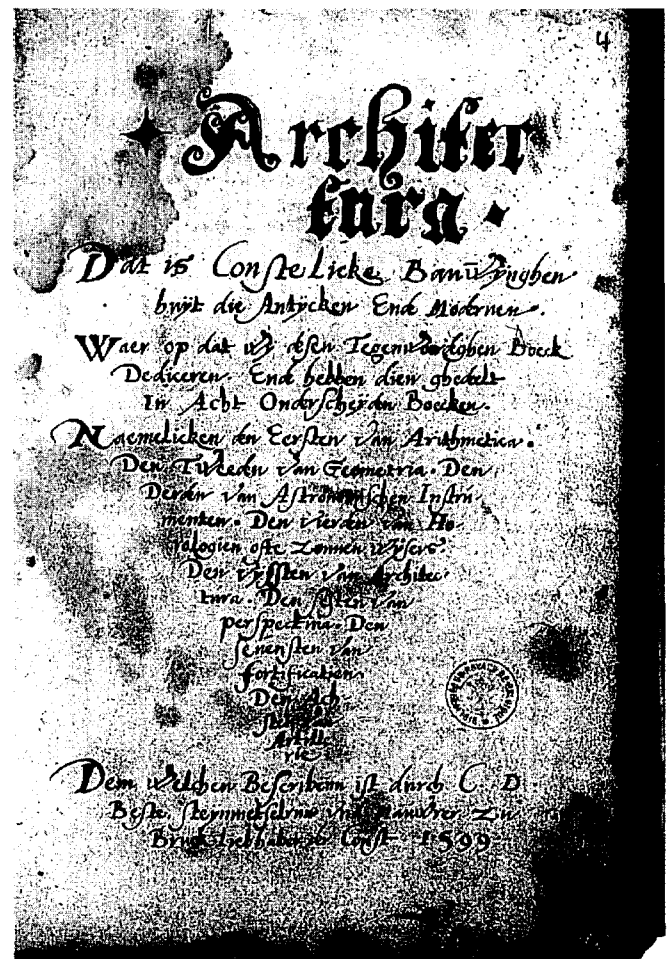 4
Architec
tura.
Dat is Constelicke Bauwÿnghen
huÿt die Antÿcken Ende Modernen.
Waer op dat wÿ desen Tegenwordighen Boeck
Dediceren. Ende hebben dien ghedelt
In Acht Onderscheÿden Boecken.
Naemelicken den Eersten Van Arithmetica.
Den Tweeden Van Geometria. Den
Derden Van Astronomischen Instru
menten. Den Vierden van Ho
rologien ofte Zonnen wÿsers.
Den Vÿfften Van Architec
tura. Den sesten Van
perspectiua. Den
seuensten Van
fortification
Den Ach
sten Van
Artille
rie
Dem Welchen Bescribenn ist durch C. D.
Beste, steinmetselrer vnd Maurer Zu
Bruck Liebhaber Const 1599